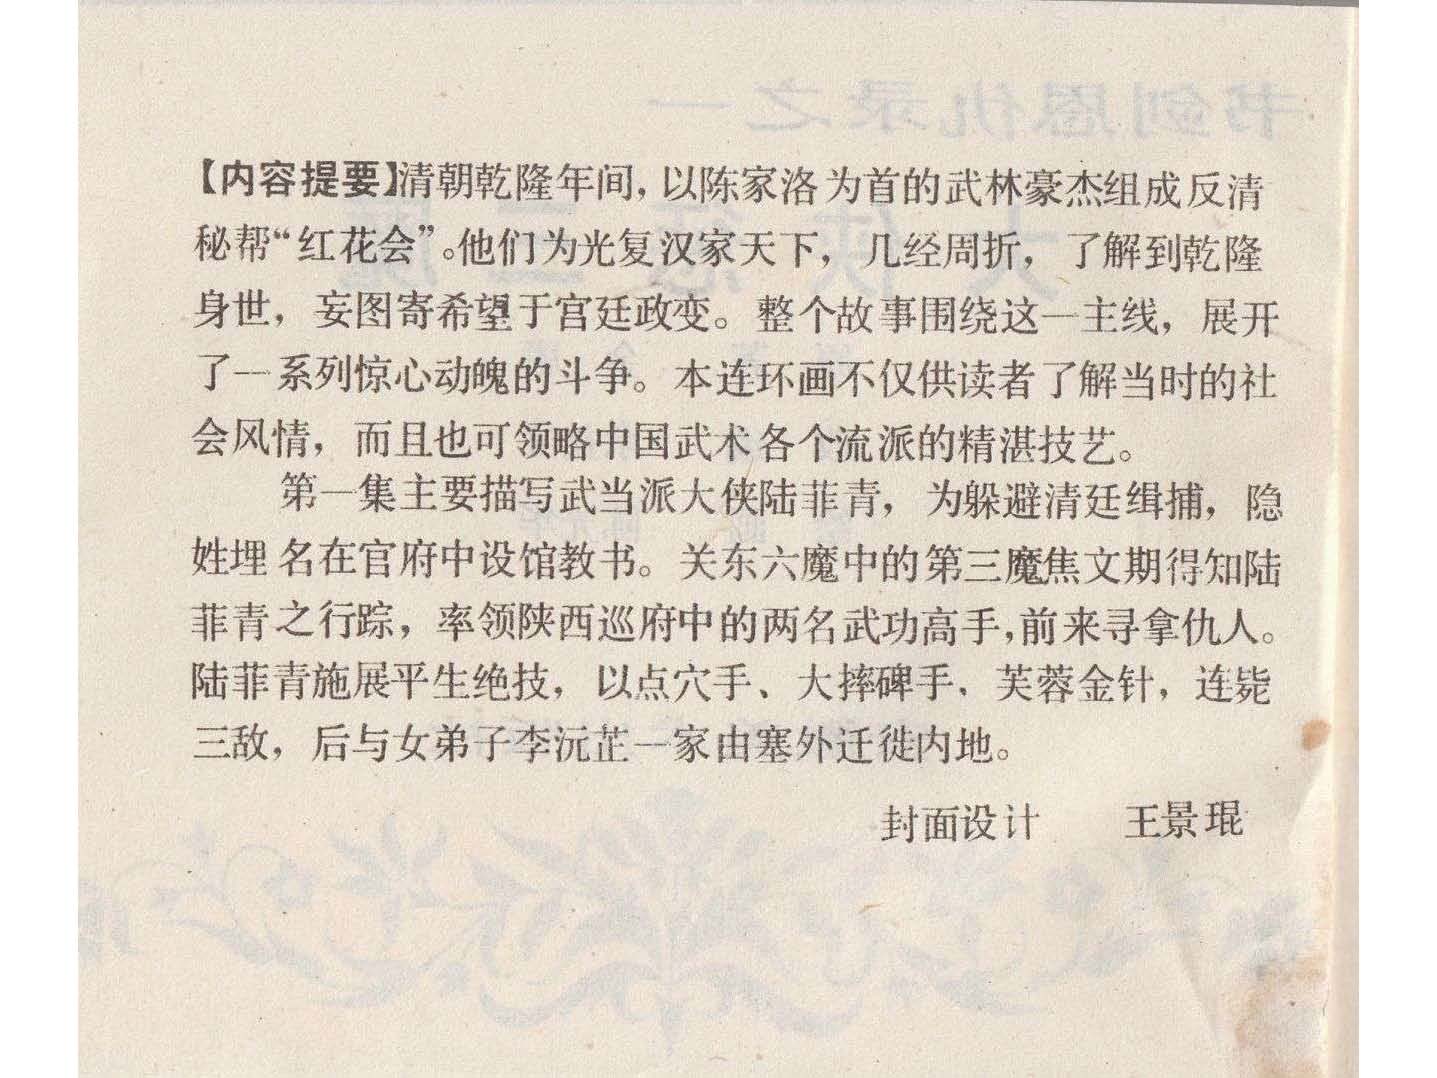 书剑恩仇录之一
【内容提要】清朝乾隆年间，以陈家洛为首的武林豪杰组成反清
秘帮“红花会”。他们为光复汉家天下，几经周折，了解到乾隆
身世，妄图寄希望于宫廷政变。整个故事围绕这一主线，展开
了一系列惊心动魄的斗争。本连环画不仅供读者了解当时的社
会风情，而且也可领略中国武术各个流派的精湛技艺。
第一集主要描写武当派大侠陆菲青，为躲避清廷缉捕，隐
姓埋名在官府中设馆教书。关东六魔中的第三魔焦文期得知陆
菲青之行踪，率领陕西巡府中的两名武功高手，前来寻拿仇人。
陆菲青施展平生绝技，以点穴手、大摔碑手、芙蓉金针，连毙
三敌，后与女弟子李沅芷一家由塞外迁徙内地。
封面设计 王景琨